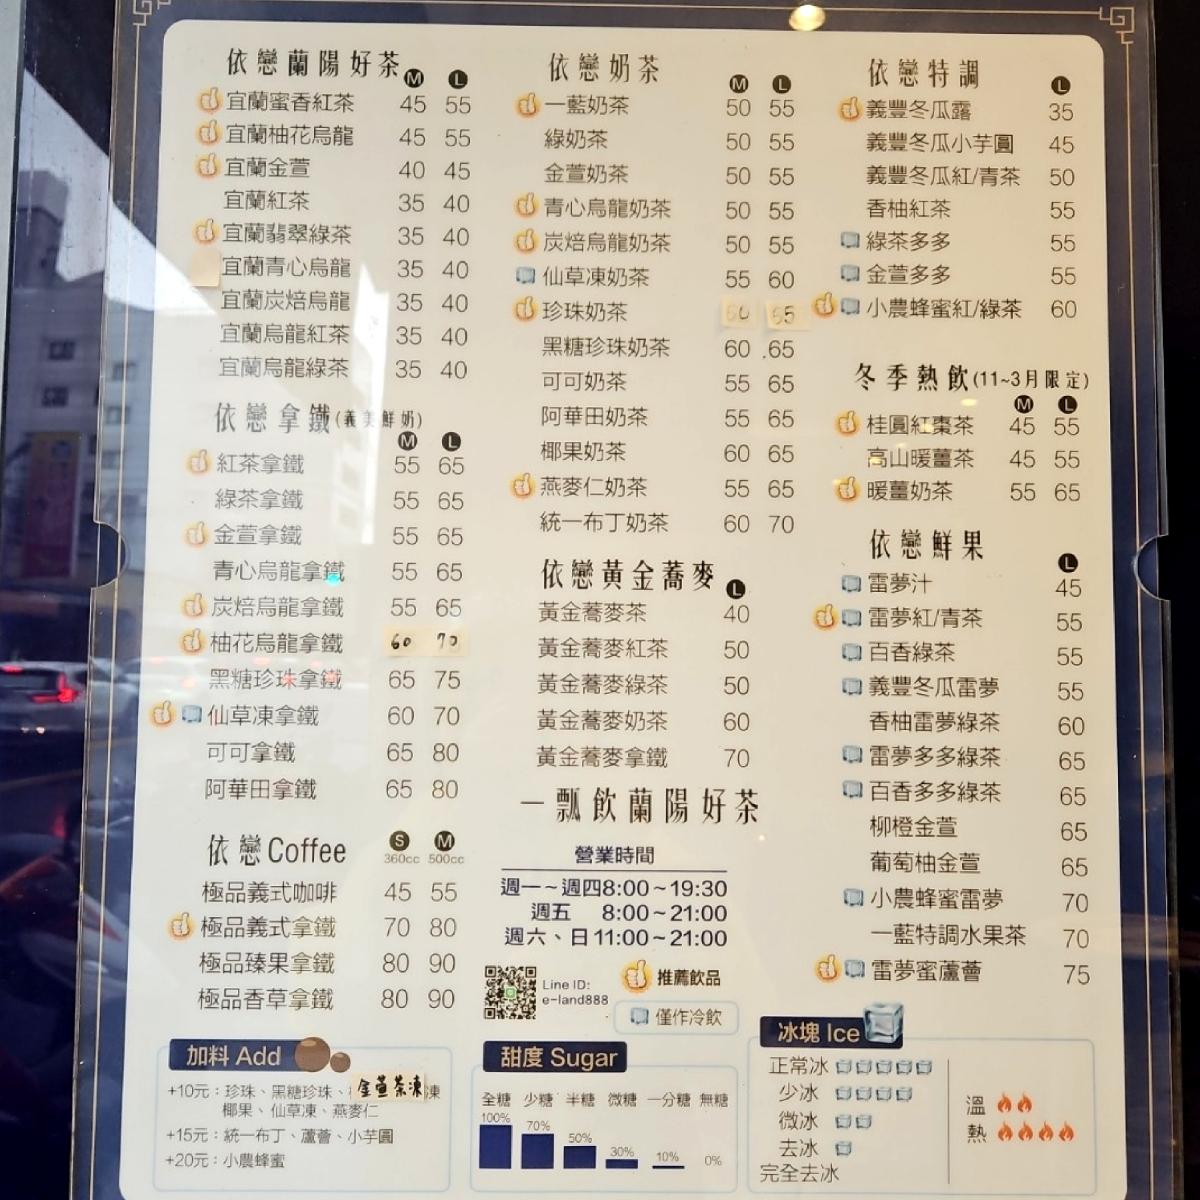 依戀蘭陽好茶 M L
宜蘭蜜香紅茶 45 55
宜蘭柚花烏龍 45 55
宜蘭金萱 40 45
宜蘭紅茶 35 40
宜蘭翡翠綠茶 35 40
宜蘭青心烏龍 35 40
宜蘭炭焙烏龍 35 40
宜蘭烏龍紅茶 35 40
宜蘭烏龍綠茶 35 40
依戀拿鐵(義美鮮奶) M L
紅茶拿鐵 55 65
綠茶拿鐵 55 65
金萱拿鐵 55 65
青心烏龍拿鐵 55 65
炭焙烏龍拿鐵 55 65
柚花烏龍拿鐵 60 70
黑糖珍珠拿鐵 65 75
仙草凍拿鐵 60 70
可可拿鐵 65 80
阿華田拿鐵 65 80
依戀Coffee S M
360cc 500cc
極品義式咖啡 45 55
極品義式拿鐵 70 80
極品臻果拿鐵 80 90
極品香草拿鐵 80 90
加料 Add
+10元：珍珠、黑糖珍珠、金萱茶凍 凍
椰果、仙草凍、燕麥仁
+15元：統一布丁、蘆薈、小芋圓
+20元：小農蜂蜜
依戀奶茶 M L
一藍奶茶 50 55
綠奶茶 50 55
金萱奶茶 50 55
青心烏龍奶茶 50 55
炭焙烏龍奶茶 50 55
仙草凍奶茶 55 60
珍珠奶茶 50 55
黑糖珍珠奶茶 60 65
可可奶茶 55 65
阿華田奶茶 55 65
椰果奶茶 60 65
燕麥仁奶茶 55 65
統一布丁奶茶 60 70
依戀黃金蕎麥 L
黃金蕎麥茶 40
黃金蕎麥紅茶 50
黃金蕎麥綠茶 50
黃金蕎麥奶茶 60
黃金蕎麥拿鐵 70
一瓢飲蘭陽好茶
營業時間
週一～週四8:00～19:30
週五 8:00～21:00
週六、日11:00～21:00
Line ID:
e-land888
推薦飲品
僅作冷飲
甜度 Sugar
全糖 少糖 半糖 微糖 一分糖 無糖
100% 70% 50% 30% 10% 0%
依戀特調 L
義豐冬瓜露 35
義豐冬瓜小芋圓 45
義豐冬瓜紅/青茶 50
香柚紅茶 55
綠茶多多 55
金萱多多 55
小農蜂蜜紅/綠茶 60
冬季熱飲(11~3月限定)
M L
桂圓紅棗茶 45 55
高山暖薑茶 45 55
暖薑奶茶 55 65
依戀鮮果 L
雷夢汁 45
雷夢紅/青茶 55
百香綠茶 55
義豐冬瓜雷夢 55
香柚雷夢綠茶 60
雷夢多多綠茶 65
百香多多綠茶 65
柳橙金萱 65
葡萄柚金萱 65
小農蜂蜜雷夢 70
一藍特調水果茶 70
雷夢蜜蘆薈 75
冰塊 Ice
正常冰
少冰
微冰
去冰
完全去冰
溫
熱